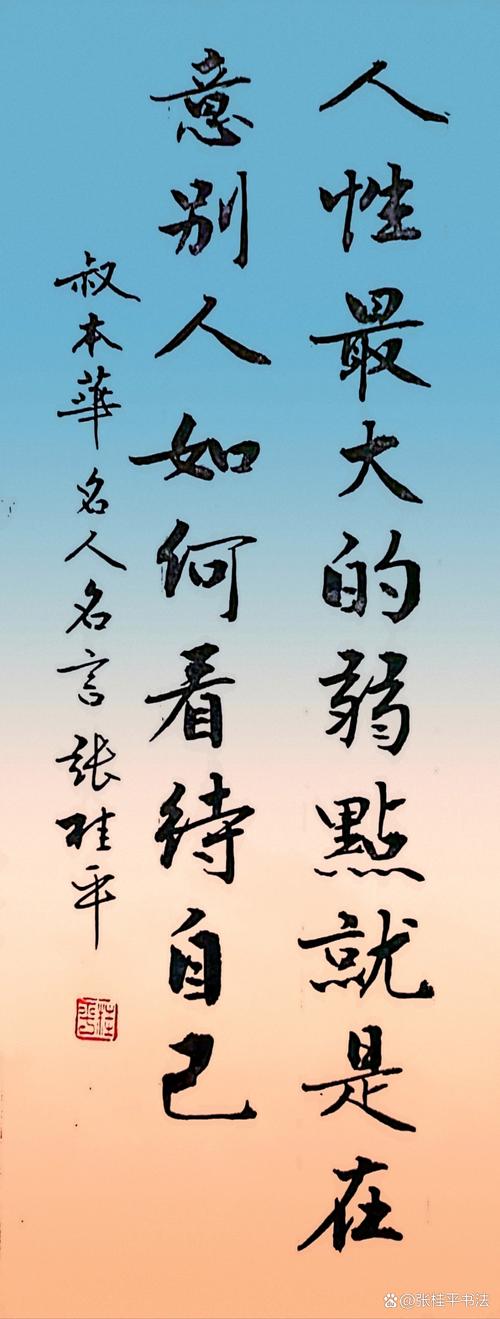 人性最大的弱點就是在
意别人如何看待自己
叔本華名人名言張桂平
桂平
@张桂平书法